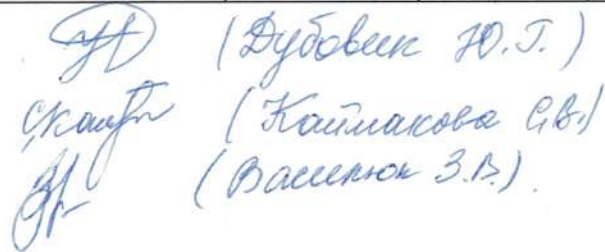 (Дубовик Ю.Г.)
(Каймакова С.В.)
(Василюк З.В.)